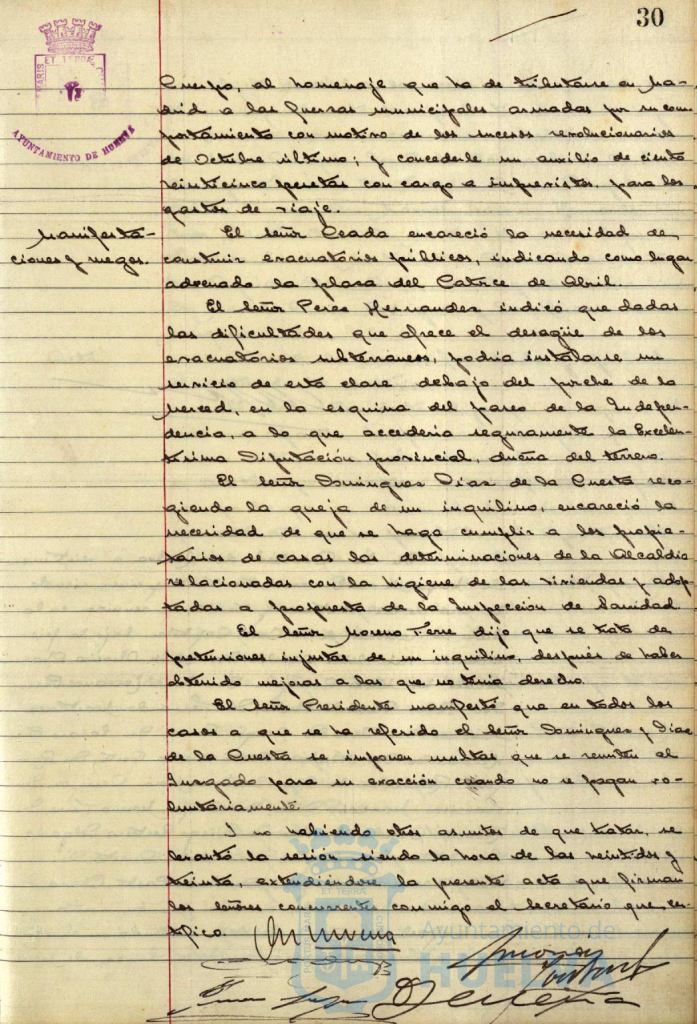 30
AYUNTAMIENTO DE HUELVA
Cuerpo, al homenaje que ha de tributarse en Ma-
drid a las fuerzas municipales armadas por su com
portamiento con motivo de los sucesos revolucionarios
de Octubre último; y concederle un auxilio de ciento
veinticinco pesetas con cargo a imprevistos, para los
gastos de viaje.
Manifesta-
ciones y ruegos.
El señor Ceada encareció la necesidad de
construir evacuatorios públicos, indicando como lugar
adecuado la plaza del Catorce de Abril.
El señor Perez Hernandez indicó que dadas
las dificultades que ofrece el desagüe de los
evacuatorios subterraneos, podria instalarse un
servicio de esta clase debajo del porche de la
Merced, en la esquina del paseo de la Indepen-
dencia, a lo que accederia seguramente la Excelen-
tisima Diputación provincial, dueña del terreno.
El señor Dominguez Diaz de la Cuesta reco-
giendo la queja de un inquilino, encareció la
necesidad de que se haga cumplir a los propie-
tarios de casas las determinaciones de la Alcaldia
relacionadas con la higiene de las viviendas y adop-
tadas a propuesta de la Inspección de Sanidad
El señor Moreno Ferre dijo que se trata de
pretensiones injustas de un inquilino, después de haber
obtenido mejoras a las que no tenia derecho.
El señor Presidente manifestó que en todos los
casos a que se ha referido el señor Dominguez y Diaz
de la Cuesta se imponen multas que se remiten al
Juzgado para su exacción cuando no se pagan vo-
luntariamente
I no habiendo otros asuntos de que tratar, se
levantó la sesión siendo la hora de las veintidos y
treinta, extendiéndose la presente acta que firman
los señores concurrentes conmigo el Secretario que cer-
tifico.
Ayuntamiento de
HUELVA